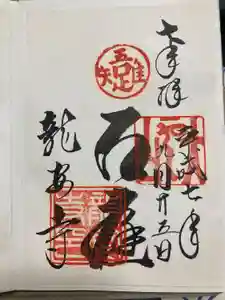 奉拝
平成七年
八月廿五日
石庭
龍安寺
吾唯足知